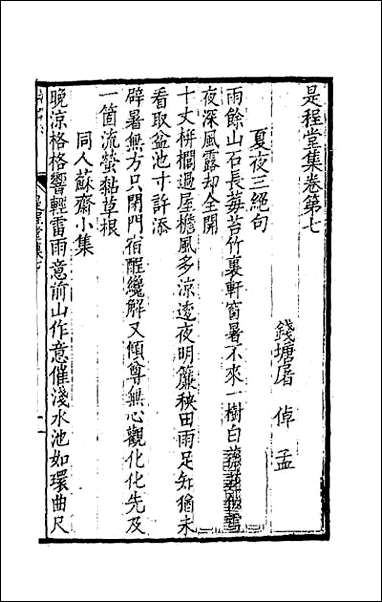 是程堂集卷第七
錢塘屠倬孟
夏夜三絕句
雨餘山石長莓苔竹裏軒窗暑不來一樹白
夜深風露却全開
十丈栟櫚過屋檐風多涼逡夜明簾秧田雨足知猶未
看取盆池寸許添
辟暑無方只閉門宿酲纔解又傾尊無心觀化化先及
一箇流螢黏草根
同人蘇齋小集
晚涼格格響輕雷雨意前山作意催淺水池如環曲尺